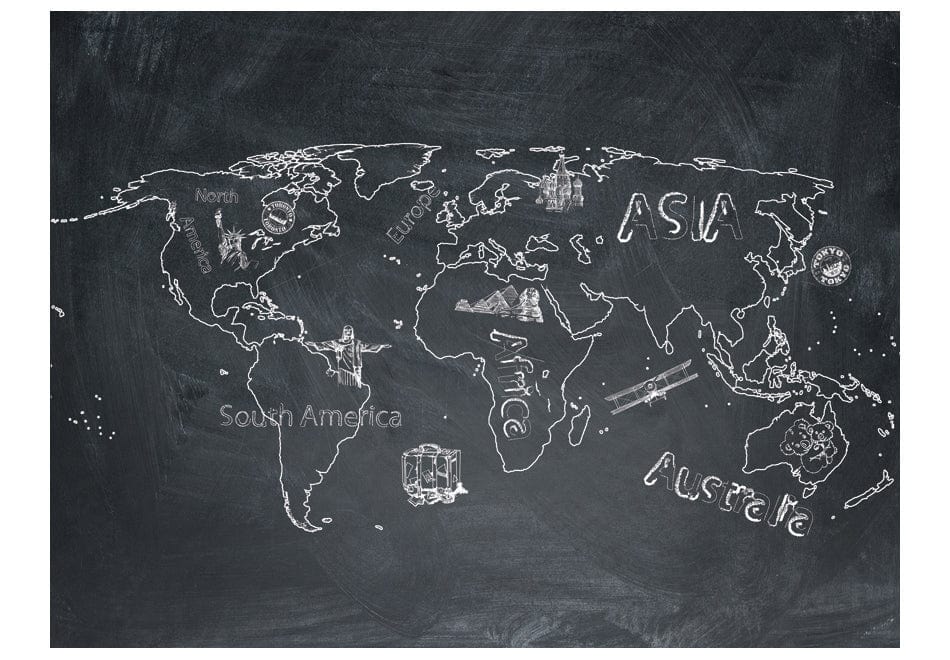 North
America
TORONTO
TORONTO
Europe
ASIA
TOKYO
TOKYO
Africa
South America
Australia